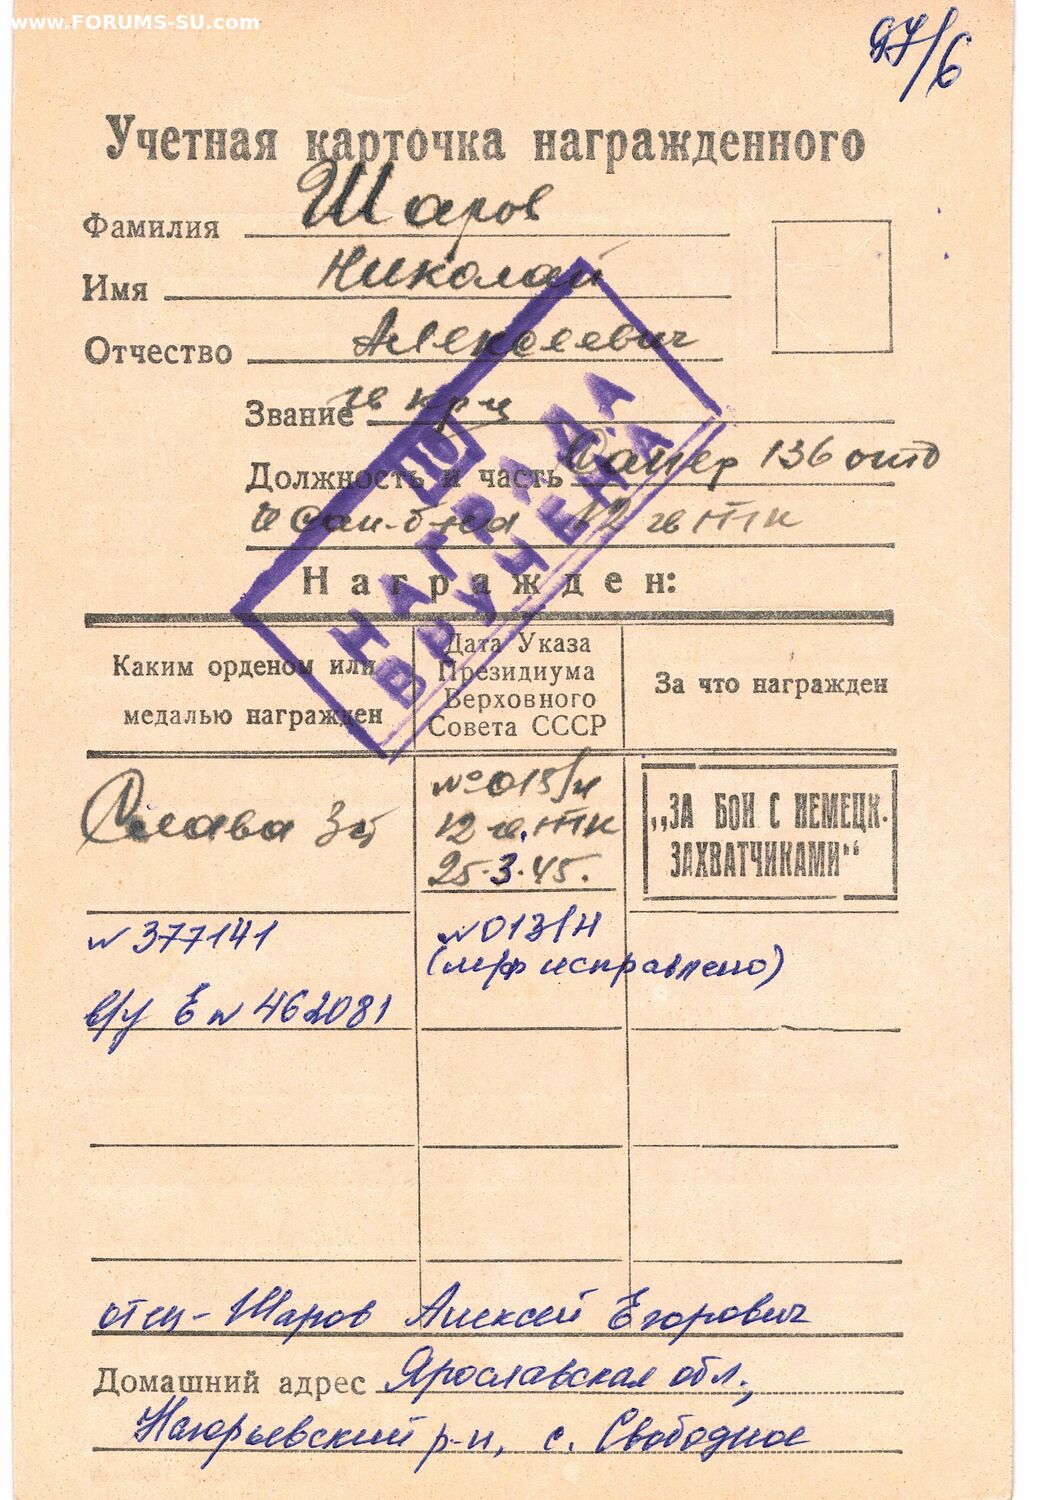 www.FORUMS-SU.com
97/6
Учетная карточка награжденного
Фамилия Шаров
Имя Николай
Отчество Алексеевич
Звание гв кр-ц
Должность и часть Сапер 136 отд
сап. б-на 12 гв ТК
ДО
НАГРАДА
ВРУЧЕНА
Награжден:
Каким орденом или медалью награжден
Дата Указа Президиума Верховного Совета СССР
За что награжден
Слава 3 ст
№ 013/н
12 гв. ТК
25.3.45.
„ЗА БОИ С НЕМЕЦК.
ЗАХВАТЧИКАМИ“
№ 377141
№ 013/н
исправлено)
в/у Е № 462081
отец - Шаров Алексей Егорович
Домашний адрес Ярославская обл.,
Нагорьевский р-н, с. Свободное